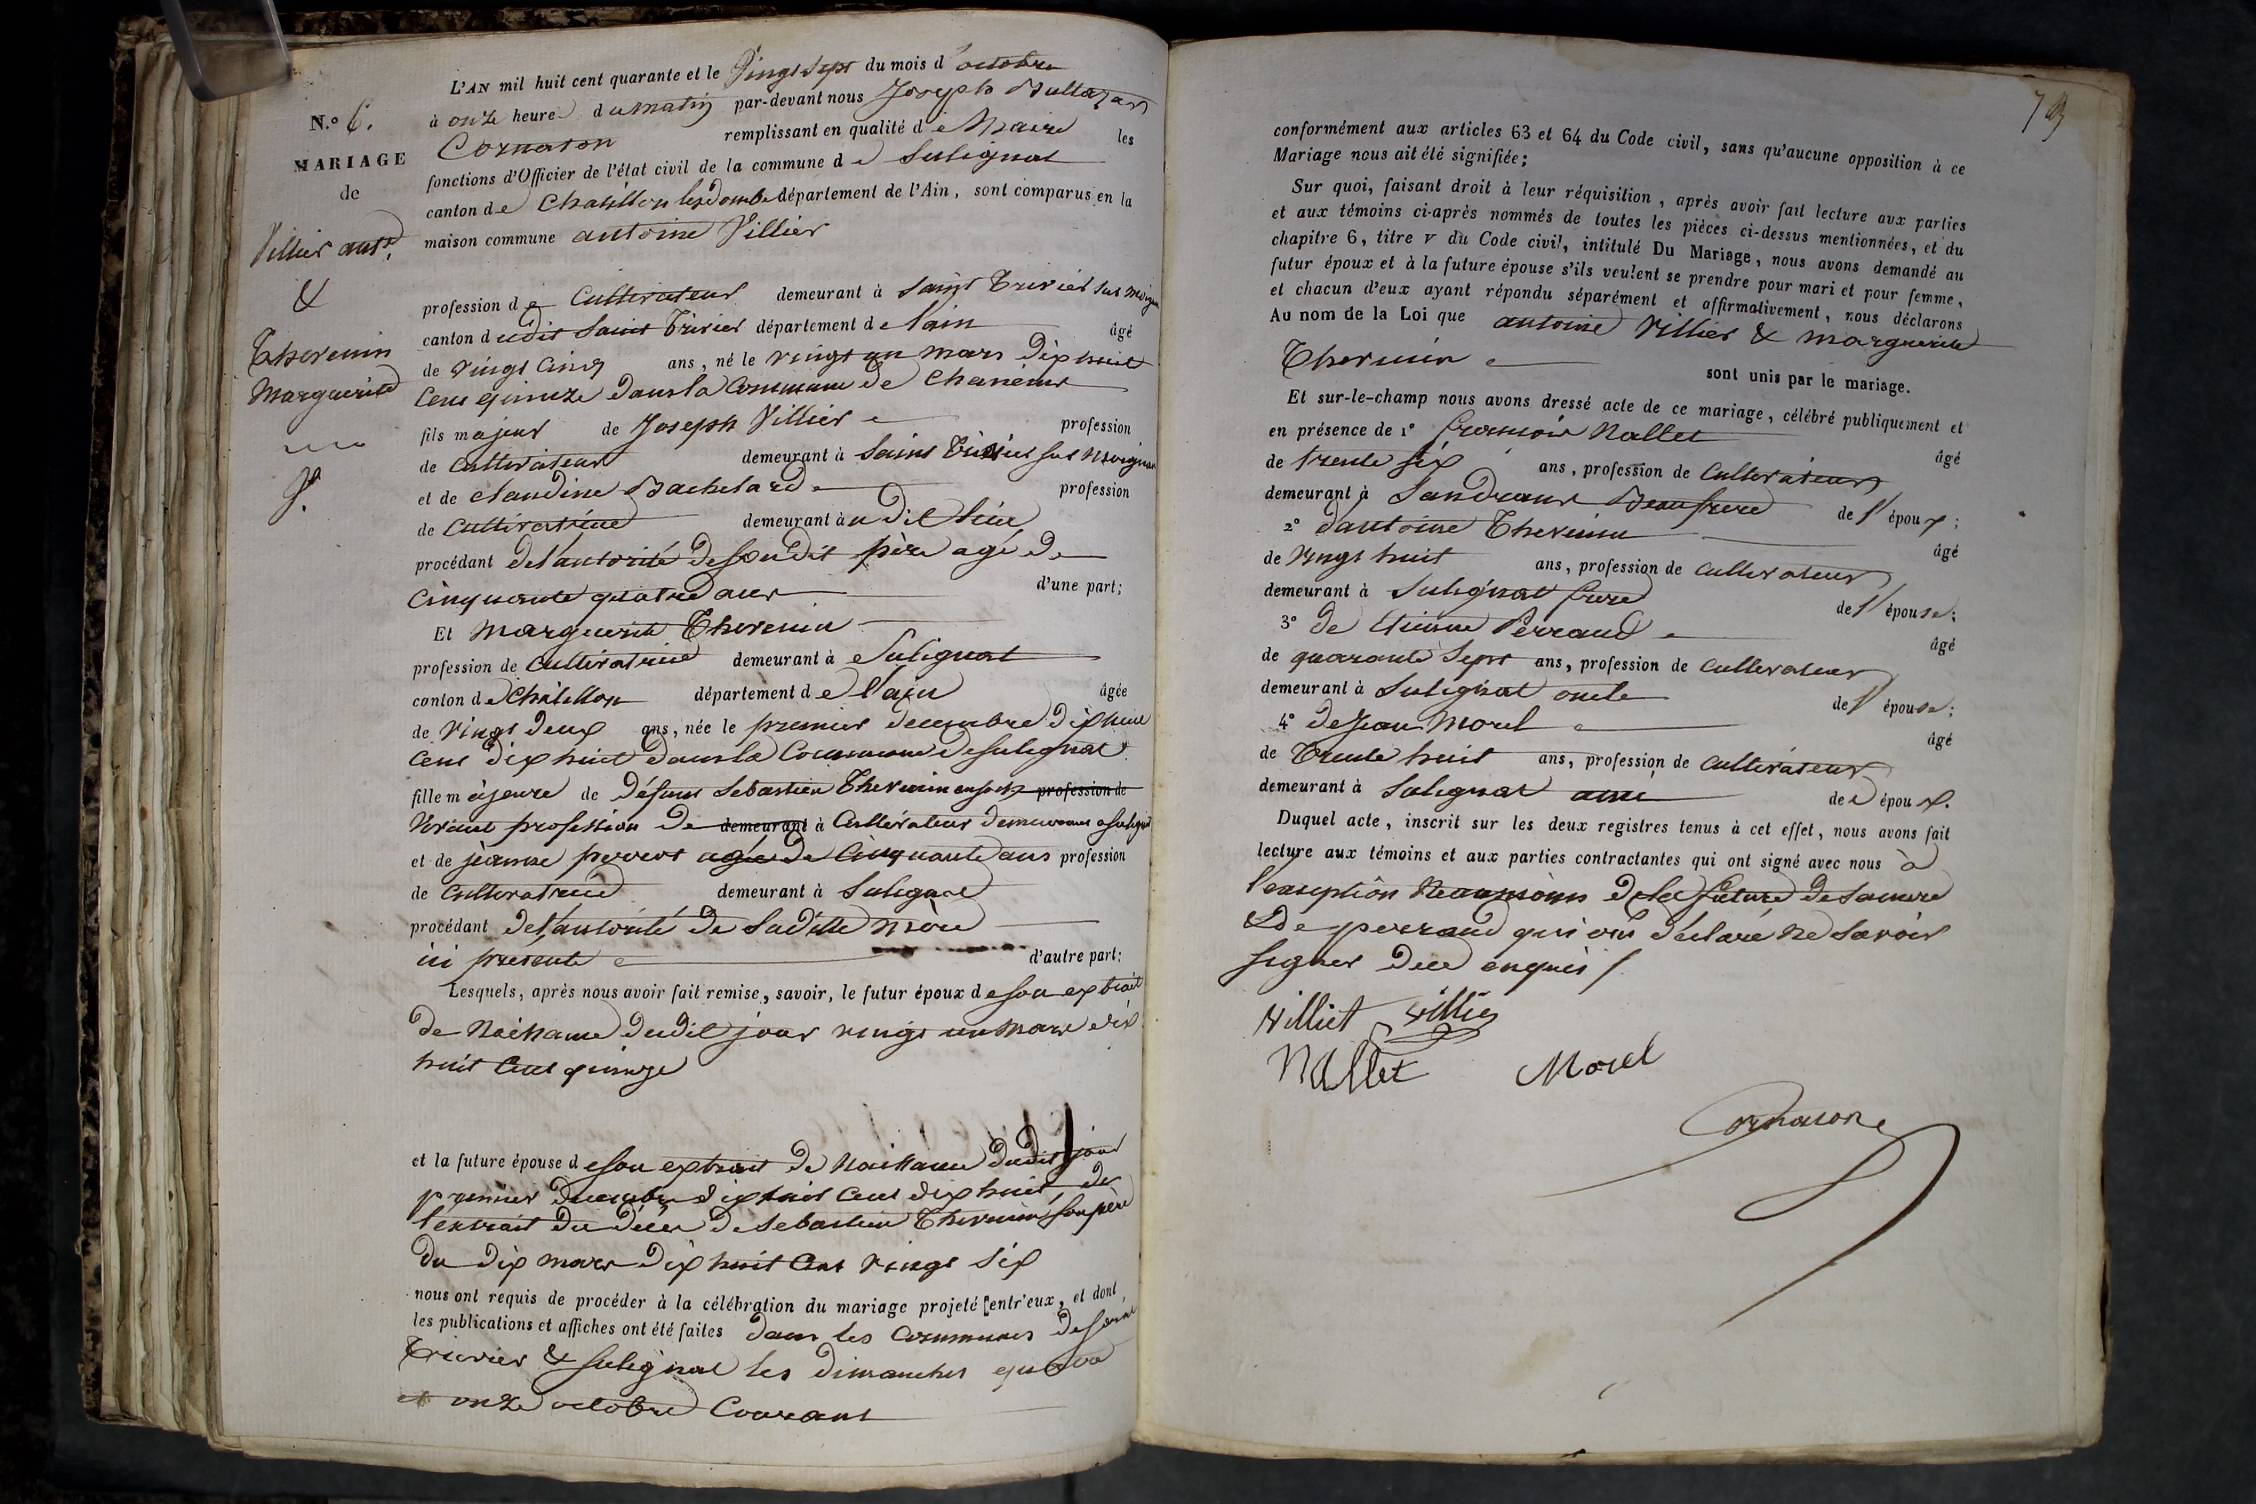 N.o 6.
MARIAGE
de
Villier ant.e
&
Thevenin
Marguerite
L'AN mil huit cent quarante et le Vingt Sept du mois d'octobre
à onze heure du matin par-devant nous Joseph Baltazar
Cornaton remplissant en qualité de Maire les
fonctions d'Officier de l'état civil de la commune de Sulignat
canton de Chatillon les Dombe département de l'Ain, sont comparus en la
maison commune antoine Villier
profession de Cultivateur demeurant à Saint Trivier sur Moignan
canton dudit Saint Trivier département de l'ain âgé
de vingt Cinq ans, né le vingt un mars dix huit
Cent quinze dans la Commune de Chaneins
fils majeur de Joseph Villier profession
de Cultivateur demeurant à Saint Trivier sur Moignan
et de claudine Bachelard profession
de Cultivatrice demeurant audit lieu
procédant de l'autorité de son dit père agé de
Cinquante quatre ans d'une part;
Et Marguerite Thevenin
profession de Cultivatrice demeurant à Sulignat
canton de Châtillon département de l'ain âgée
de vingt deux ans, née le premier decembre dix huit
Cent dix huit dans la Commune de Sulignat
fille majeure de défunt Sebastien Thevenin en son profession de
vivant profession de demeurant à Cultivateur demeurant a Sulignat
et de jeanne perret agée de Cinquante ans profession
de Cultivatrice demeurant à Sulignat
procédant de l'autorité de Sa dite mère
ici presente d'autre part:
Lesquels, après nous avoir fait remise, savoir, le futur époux de son extrait
de Naissance dudit jour vingt un Mars dix
huit Cent quinze
et la future épouse de son extrait de Naissance dudit jour
premier decembre dix huit Cent dix huit, de
l'extrait du décès de Sebastien Thevenin, son père
du dix mars dix huit Cent vingt six
nous ont requis de procéder à la célébration du mariage projeté entr'eux, et dont
les publications et affiches ont été faites dans les Communes de Saint
Trivier & Sulignat les dimanches quatre
et onze octobre Courant
79
conformément aux articles 63 et 64 du Code civil, sans qu'aucune opposition à ce
Mariage nous ait été signifiée;
Sur quoi, faisant droit à leur réquisition, après avoir fait lecture aux parties
et aux témoins ci-après nommés de toutes les pièces ci-dessus mentionnées, et du
chapitre 6, titre V du Code civil, intitulé Du Mariage, nous avons demandé au
futur époux et à la future épouse s'ils veulent se prendre pour mari et pour femme,
et chacun d'eux ayant répondu séparément et affirmativement, nous déclarons
Au nom de la Loi que antoine Villier & Marguerite
Thevenin sont unis par le mariage.
Et sur-le-champ nous avons dressé acte de ce mariage, célébré publiquement et
en présence de 1° francois Nallet âgé
de trente six ans, profession de Cultivateur
demeurant à Sandrans Beaufrere de l'époux;
2° d'antoine Thevenin âgé
de vingt huit ans, profession de Cultivateur
demeurant à Sulignat frere de l'épouse;
3° de Etienne Perraud âgé
de quarante Sept ans, profession de Cultivateur
demeurant à Sulignat oncle de l'épouse;
4° de Jean Morel âgé
de Trente huit ans, profession de Cultivateur
demeurant à Sulignat ami de l'époux.
Duquel acte, inscrit sur les deux registres tenus à cet effet, nous avons fait
lecture aux témoins et aux parties contractantes qui ont signé avec nous à
l'exception Neanmoins de la future de Sa mere
& de perraud qui ont déclaré ne Savoir
Signer de ce enquis
Villiet Villier
Nallet Morel
Cornaton